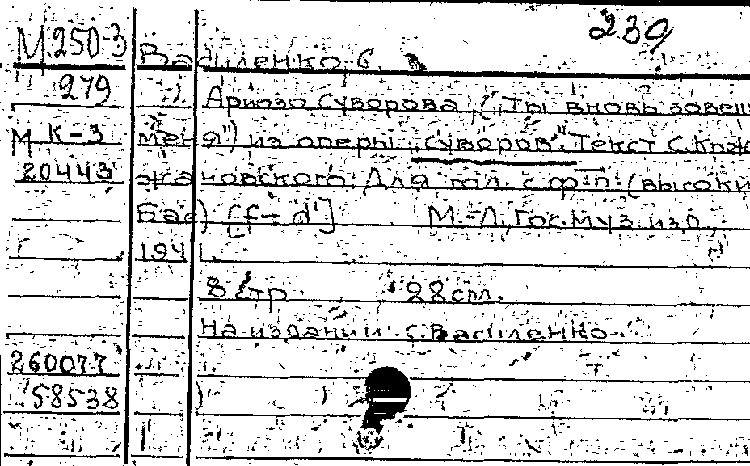 239
М 250-3 Василенко, С.
279 Ариозо Суворова („Ты вновь завещ
М К-3 меня") из оперы „Суворов". Текст С. Крж
20443 жановского. Для гол. с ф-п. (высоки
бас) [f - d'] М.-Л., Гос. муз. изд.,
1941.
8 стр. 28 см.
На издании: С. Василенко
260077
58538